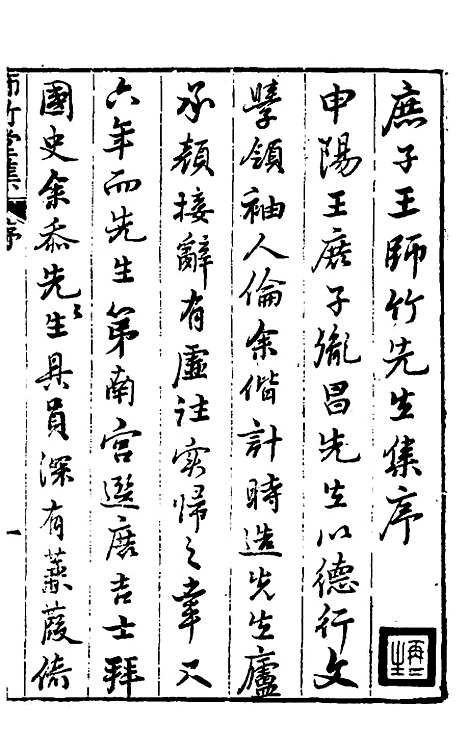 庶子王師竹先生集序
申陽王庶子胤昌先生以德行文
學領袖人倫余偕計時造先生廬
承顏接辭有虛往實歸之幸又
六年而先生第南宮選庶吉士拜
國史余忝先先生具員深有蒹葭倚
師竹堂集
序
一